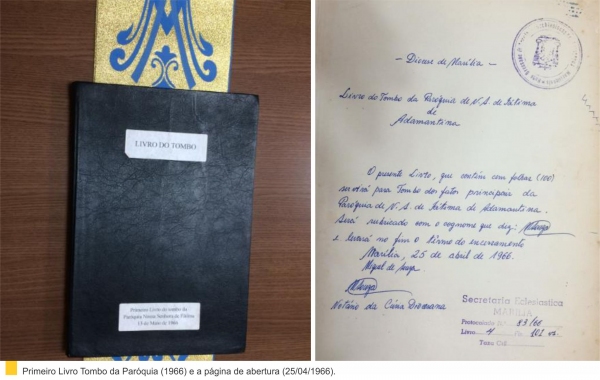 LIVRO DO TOMBO
Primeiro Livro do tombo da
Paróquia Nossa Senhora de Fátima
13 de Maio de 1966
- Diocese de Marília -
Livro do Tombo da Paróquia de N. S. de Fátima
de
Adamantina
O presente Livro, que contém cem folhas (100)
servirá para Tombo dos fatos principais da
Paróquia de N. S. de Fátima de Adamantina.
Será rubricado com o cognome que diz: MSouza
e levará no fim o têrmo de encerramento
Marília, 25 de abril de 1966.
Miguel de Souza
MSouza
Notário da Cúria Diocesana
Secretaria Eclesiastica
MARILIA
Protocolado N.º 83/66
Livro 4 Fls. 101 vs.
Taxa Cr$
Primeiro Livro Tombo da Paròquia (1966) e a página de abertura (25/04/1966).